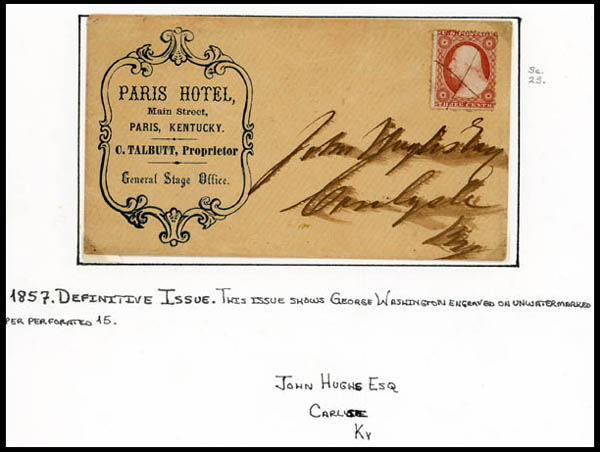 PARIS HOTEL,
Main Street,
PARIS, KENTUCKY.
C. TALBUTT, Proprietor
General Stage Office.
U.S. POSTAGE
THREE CENTS
Sc.
25.
John Hughs Esq
Carlysle
Ky
1857. DEFINITIVE ISSUE. THIS ISSUE SHOWS GEORGE WASHINGTON ENGRAVED ON UNWATERMARKED
PER PERFORATED 15.
JOHN HUGHS ESQ
CARLISE
KY